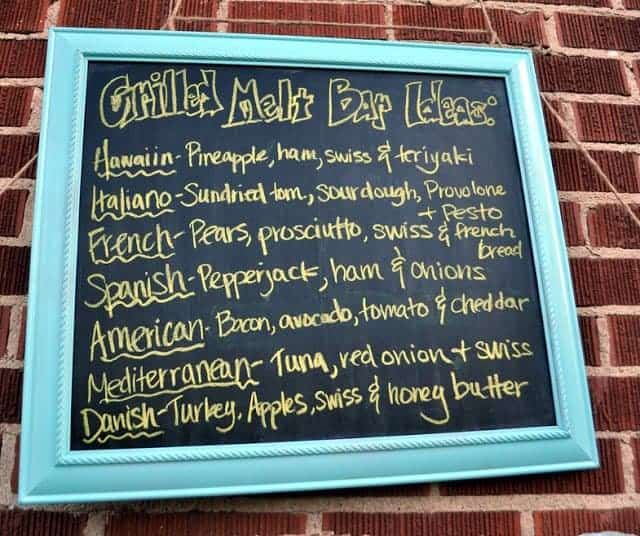 Grilled Melt Bar Ideas:
Hawaiin - Pineapple, ham, swiss & teriyaki
Italiano - Sundried tom., sourdough, Provolone
+ Pesto
French - Pears, prosciutto, swiss & french
bread
Spanish - Pepperjack, ham & onions
American - Bacon, avocado, tomato & cheddar
Mediterranean - Tuna, red onion + swiss
Danish - Turkey, Apples, swiss & honey butter